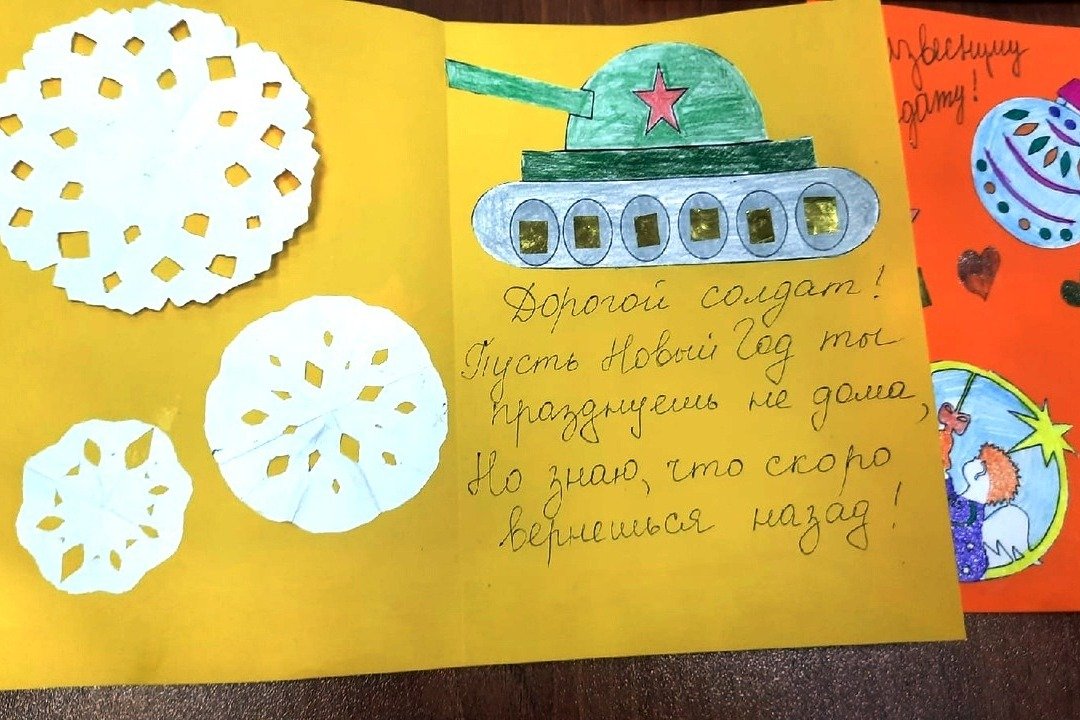 Дорогой солдат!
Пусть Новый Год ты
празднуешь не дома,
Но знаю, что скоро
вернешься назад!